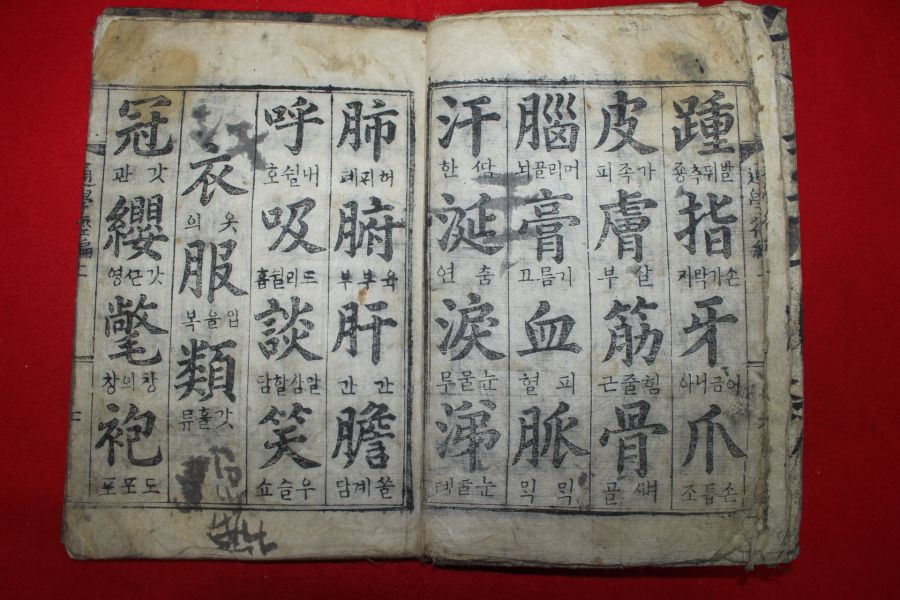 踵 발뒤축죵
指 손가락지
牙 어금니아
爪 손톱조
皮 가족피
膚 살부
筋 힘줄근
骨 ᄲᅧ골
腦 머리골뇌
膏 기름고
血 피혈
脈 믹믹
汗 ᄯᅡᆷ한
涎 춤연
淚 눈물루
涕 눈물톄
肺 허파폐
腑 육부부
肝 간간
膽 쓸계담
呼 내쉴호
吸 드리쉴흡
談 말삼할담
笑 우슬쇼
衣 옷의
服 입을복
類 갓흘류
冠 갓관
纓 갓ᄭᅳᆫ영
氅 창의창
袍 도포포